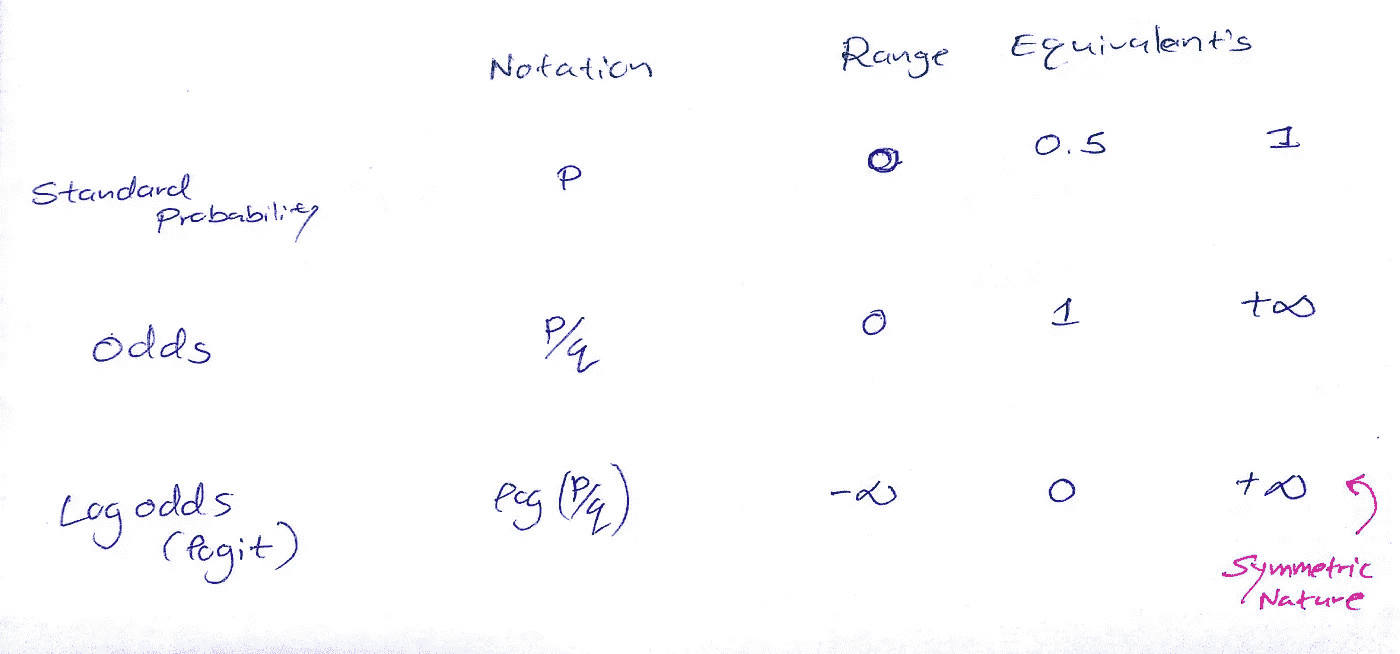 Notation Range Equivalent's
Standard Probability P 0 0.5 1
Odds P/q 0 1 +∞
Log odds (logit) log (P/q) -∞ 0 +∞
Symmetric
Nature